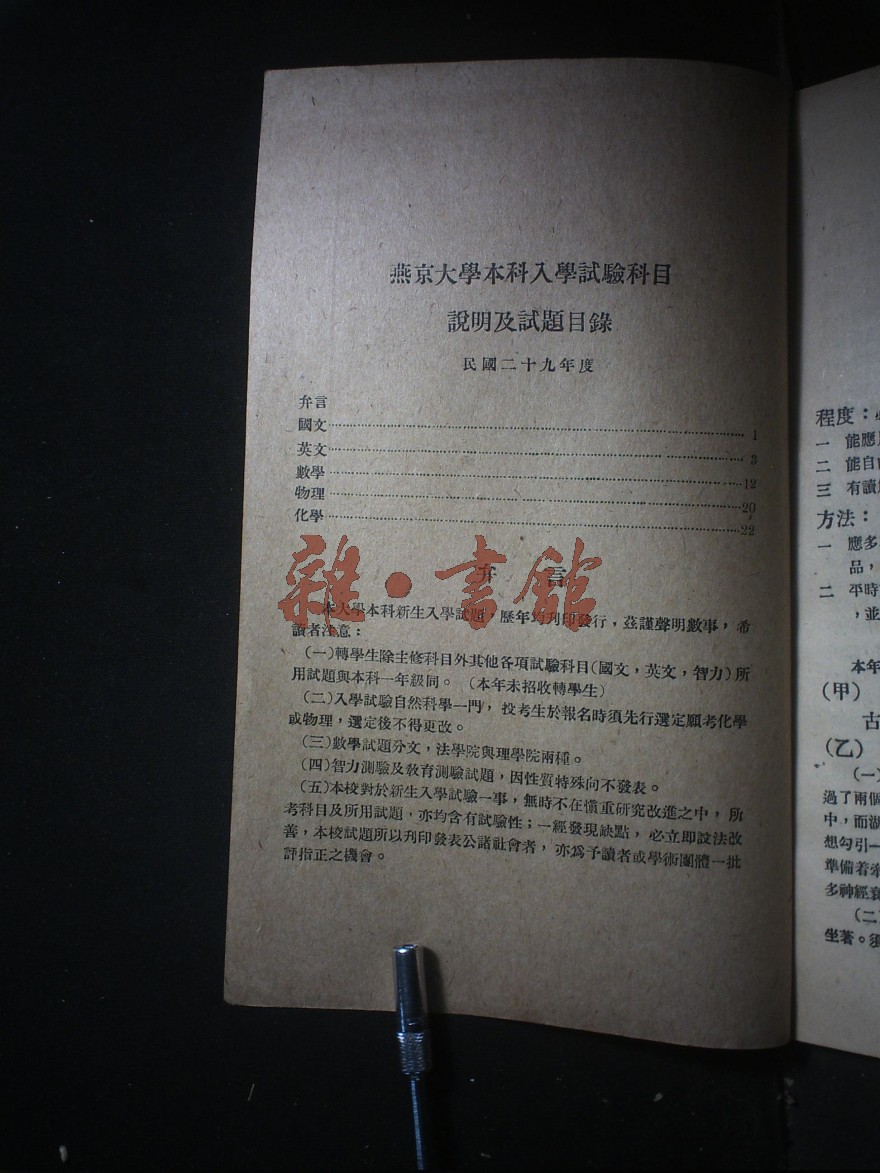 燕京大學本科入學試驗科目
說明及試題目錄
民國二十九年度
弁言
國文 1
英文 3
數學 12
物理 20
化學 22
弁言
雜·書館
本大學本科新生入學試題，歷年均刋印發行，茲謹聲明數事，希
讀者注意：
(一)轉學生除主修科目外其他各項試驗科目(國文，英文，智力)所
用試題與本科一年級同。 (本年未招收轉學生)
(二)入學試驗自然科學一門， 投考生於報名時須先行選定願考化學
或物理，選定後不得更改。
(三)數學試題分文，法學院與理學院兩種。
(四)智力測驗及敎育測驗試題，因性質特殊向不發表。
(五)本校對於新生入學試驗一事，無時不在愼重研究改進之中， 所
考科目及所用試題，亦均含有試驗性；一經發現缺點， 必立即設法改
善，本校試題所以刋印發表公諸社會者， 亦爲予讀者或學術團體一批
評指正之機會。
程度：
一 能應
二 能自
三 有讀
方法：
一 應多
品，
二 平時
，並
本年
(甲)
古
(乙)
(一)
過了兩個
中，而湖
想勾引一
準備着
多神經衰
(二)
坐著。須